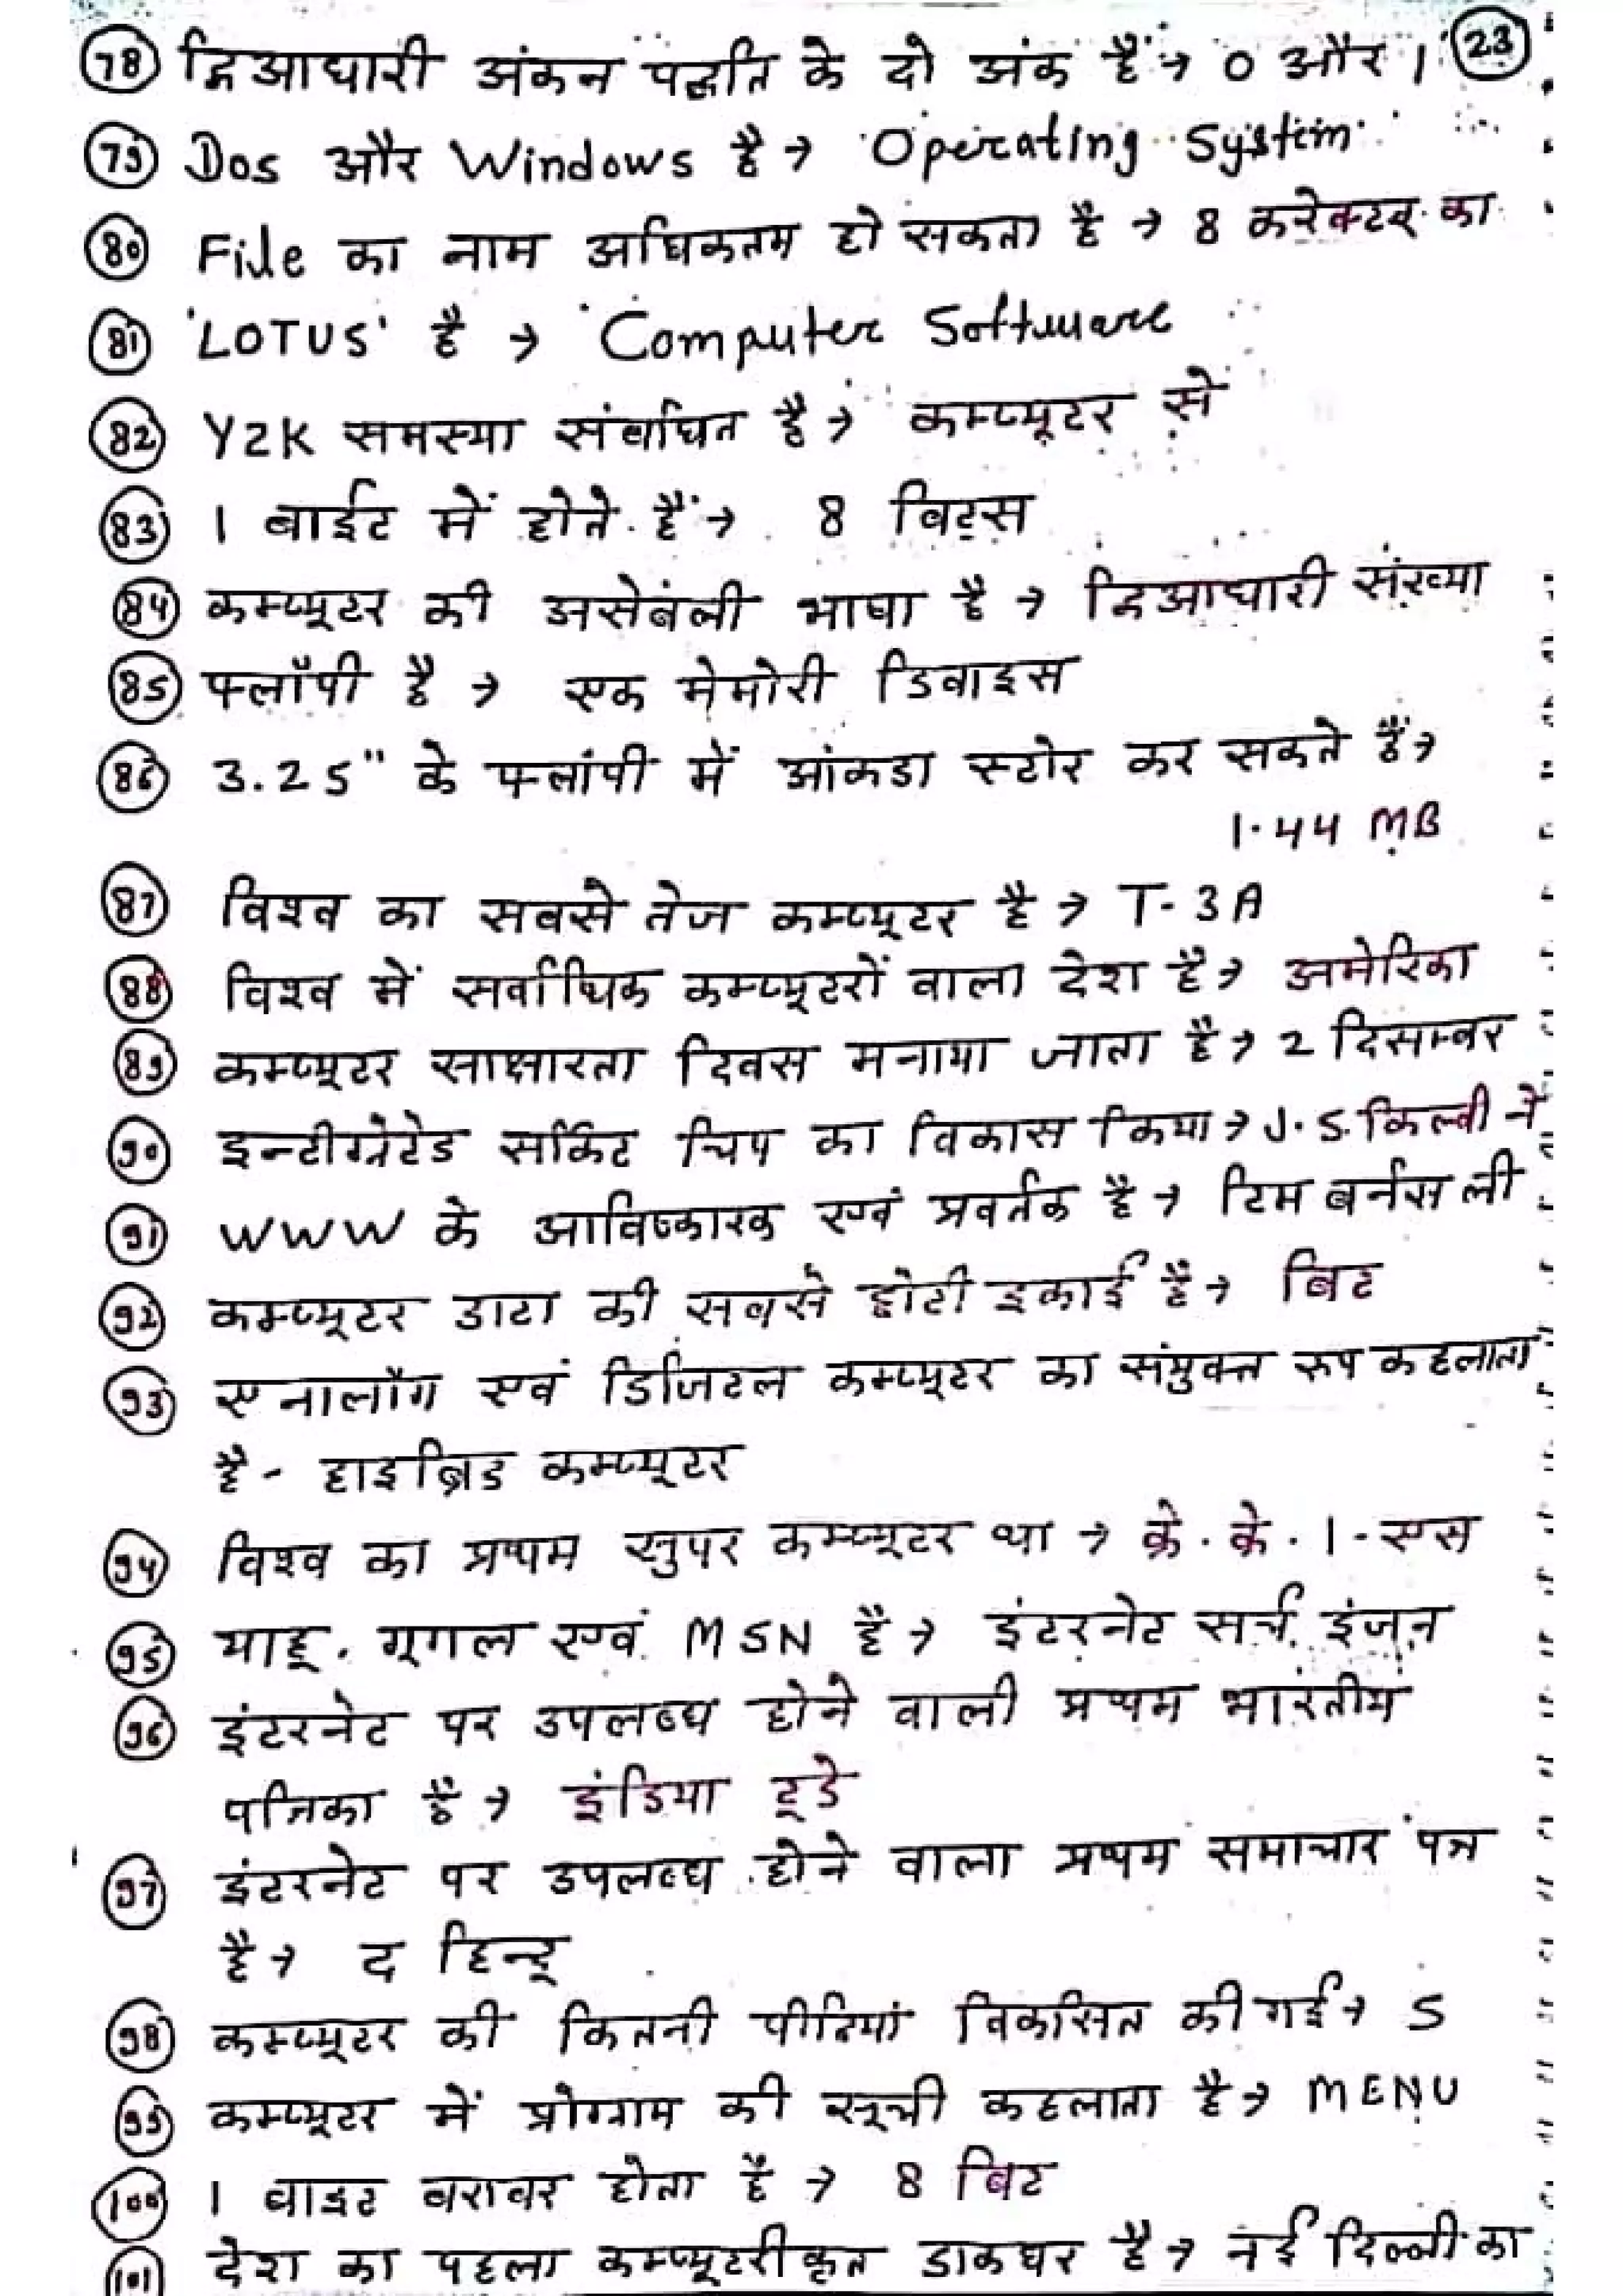 (78) द्विआधारी अंकन पद्धति के दो अंक हैं → 0 और 1 (23)
(79) Dos और Windows है → Operating System
(80) File का नाम अधिकतम हो सकता है → 8 करेक्टर का
(81) 'LOTUS' है → Computer Software
(82) Y2K समस्या संबंधित है → कम्प्यूटर से
(83) 1 बाईट में होते हैं → 8 बिट्स
(84) कम्प्यूटर की असेबंली भाषा है → द्विआधारी संख्या
(85) फ्लॉपी है → एक मेमोरी डिवाइस
(86) 3.25" के फ्लांपी में आंकडा स्टोर कर सकते हैं →
1.44 MB
(87) विश्व का सबसे तेज कम्प्यूटर है → T-3A
(88) विश्व में सर्वाधिक कम्प्यूटरों वाला देश है → अमेरिका
(89) कम्प्यूटर साक्षारता दिवस मनाया जाता है → 2 दिसम्बर
(90) इन्टीग्रेटेड सर्किट चिप का विकास किया → J.S. किल्बी ने
(91) WWW के आविष्कारक एवं प्रवर्तक है → टिम बर्नस ली
(92) कम्प्यूटर डाटा की सबसे छोटी इकाई है → बिट
(93) एनालॉग एवं डिजिटल कम्प्यूटर का संयुक्त रूप कहलाता
है - हाइब्रिड कम्प्यूटर
(94) विश्व का प्रथम सुपर कम्प्यूटर था → क्रे. के. 1-एस
(95) याहू, गूगल एवं MSN है → इंटरनेट सर्च इंजन
(96) इंटरनेट पर उपलब्ध होने वाली प्रथम भारतीय
पत्रिका है → इंडिया टूडे
(97) इंटरनेट पर उपलब्ध होने वाला प्रथम समाचार पत्र
है → द हिन्दू
(98) कम्प्यूटर की कितनी पीढियां विकसित की गई → 5
(99) कम्प्यूटर में प्रोग्राम की सूची कहलाता है → MENU
(100) 1 बाइट बराबर होता है → 8 बिट
(101) देश का पहला कम्प्यूटरीकृत डाकघर है → नई दिल्ली का